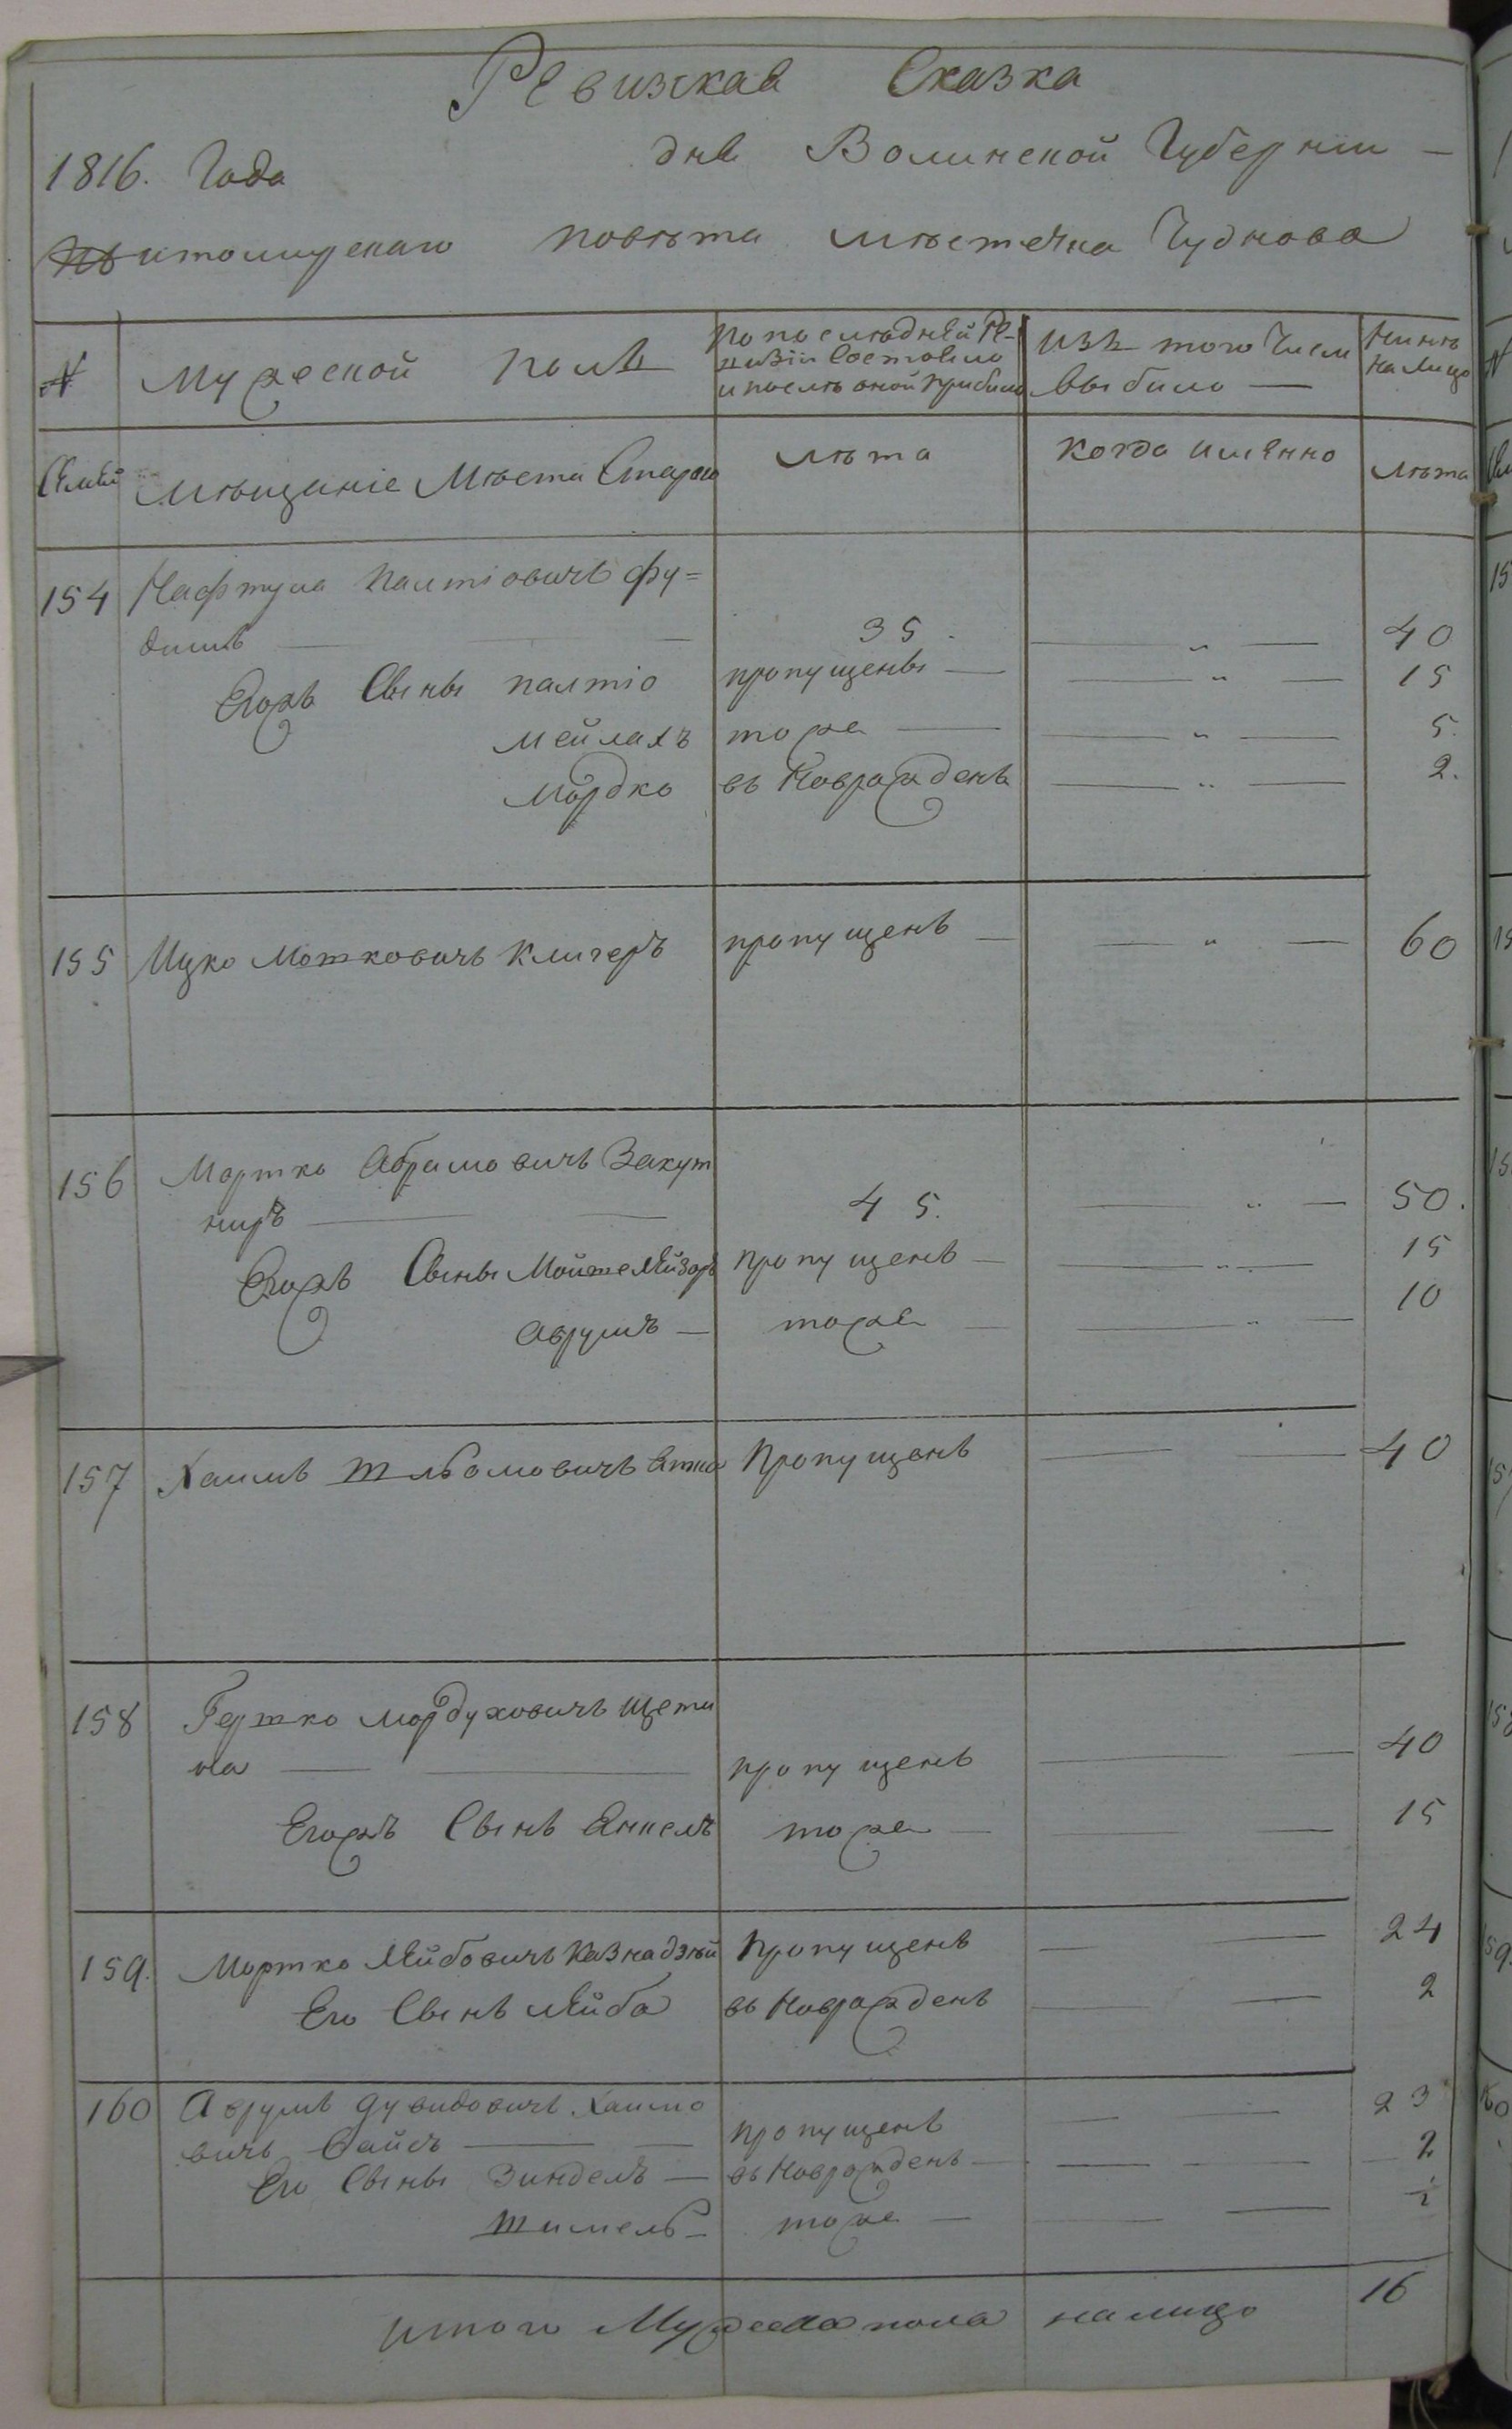 Ревизкая Сказка
1816. Года дня Волинской Губернии —
Житомирскаго повѣта мѣстечка Чуднова
№ Мужеской полъ По последней Ре- Изъ того Числа Нинѣ
визіи Состояло выбило — на лицо
и после оной прибило
Семей Мѣщаніе Мѣста Стараго лѣта когда имянно лѣта
154 Нафтула Палтіовичъ Фу=
35. 40
Егожъ Сыны Палтіо пропущены — 15
Мейлахъ тоже — 5.
Мордко въ Новрожденъ 2.
155 Ицко Мошковичъ Клигеръ пропущенъ — 60
156 Мортко Абрамовичъ Закут
ниръ 45. 50.
Егожъ Сыны Мойше Лейзоръ пропущенъ — 15
Аврумъ — тоже — 10
157 Хаимъ Шлёомовичъ Пропущенъ 40
158 Гершко Мордуховичъ Щети
на пропущенъ 40
Егожъ Сынъ Янкель тоже — 15
159. Мортко Лейбовичъ Казнадзѣй Пропущенъ 24
Его Сынъ Лейба въ Новрожденъ 2
160 Аврумъ Дувидовичъ Хаимо
вичъ пропущенъ 23
Его Сыны Зиндель — въ Новрожденъ — 2
Шмиель — тоже — ½
Итого Мужеска пола налицо 16